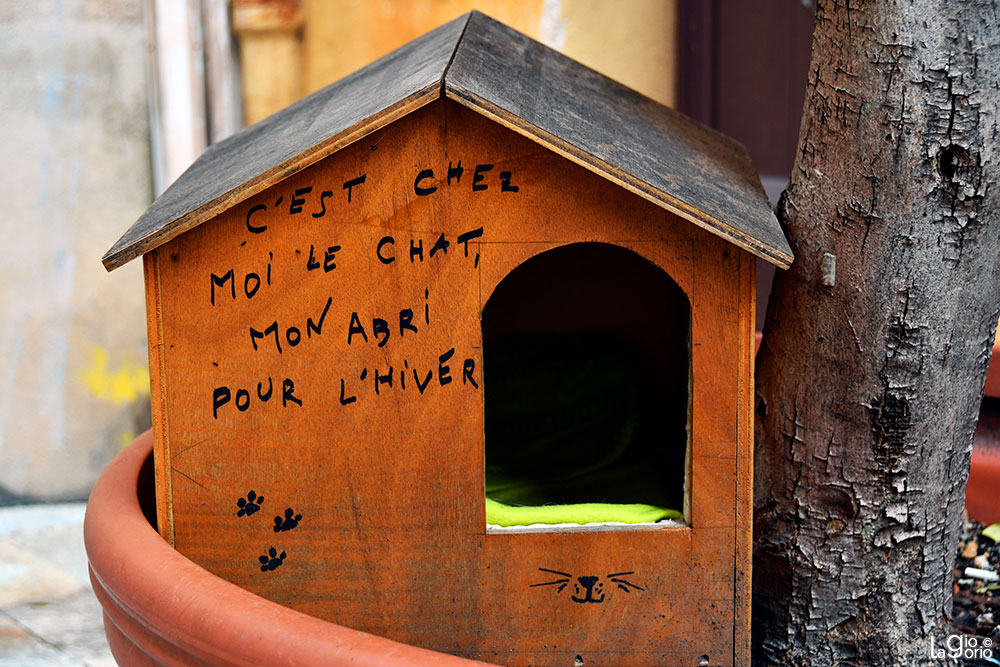 C'EST CHEZ
MOI LE CHAT,
MON ABRI
POUR L'HIVER
gio ©
Lagorio